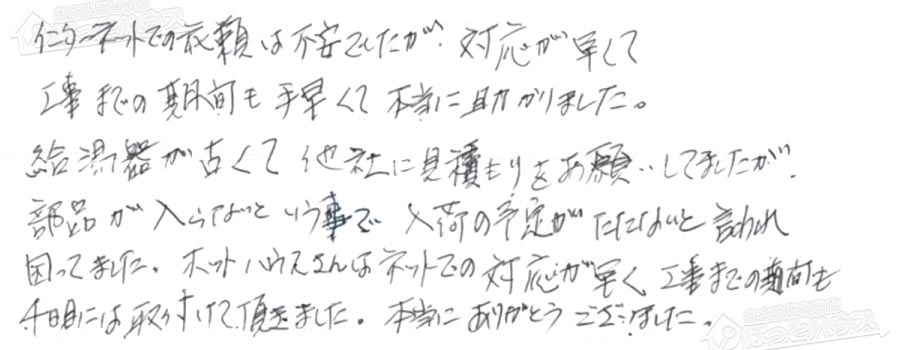 インターネットでの依頼は不安でしたが、対応が早くて
工事までの期間も手早くて本当に助かりました。
給湯器が古くて他社に見積もりをお願いしてましたが、
部品が入らないという事で入荷の予定がたたないと言われ
困ってました。ホットハウスさんはネットでの対応が早く工事までの期間も
4日目には取り付けて頂きました。本当にありがとうございました。
ほっとハウス